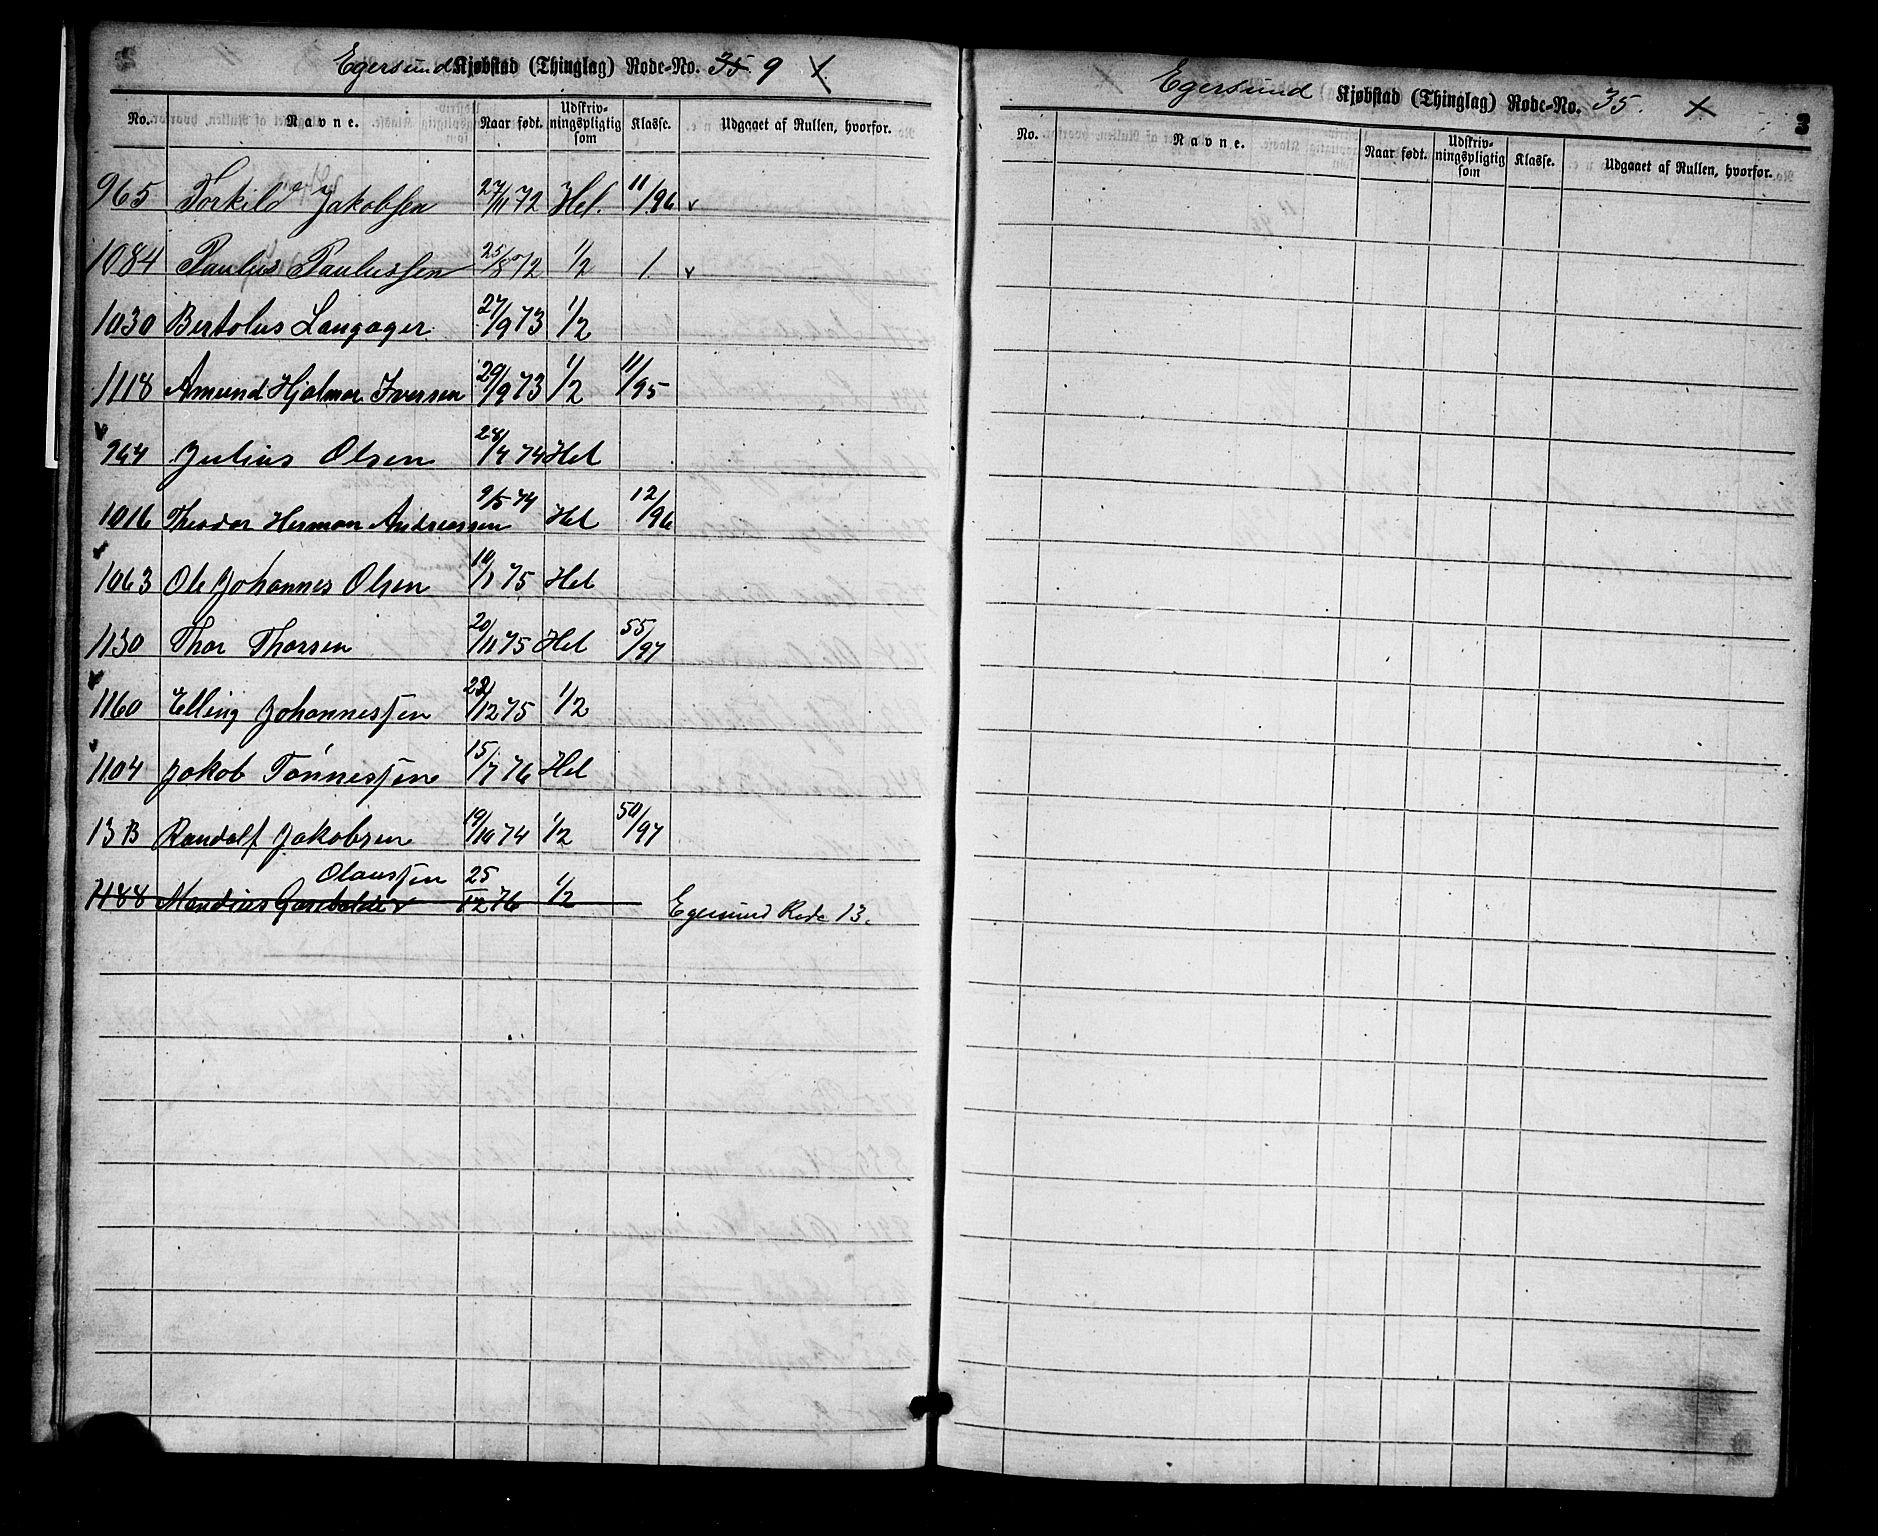 Egersund Kjøbstad (Thinglag) Rode-No. 35. 9 X
No. Navne. Naar født. Udskriv-ningspligtig som Klasse. Udgaaet af Rullen, hvorfor.
965 Torkild Jakobsen 27/11 72 Hel. 11/96 v
1084 Paulus Paulussen 25/8 72 1/2 1 v
1030 Bertolus Langager. 27/9 73 1/2
1118 Amund Hjalmar Iversen 29/9 73 1/2 11/95
964 Julius Olsen 28/4 74 Hel
1016 Theodor Herman Andreassen 9/5 74 Hel 12/96
1063 Ole Johannes Olsen 10/1 75 Hel
1130 Thor Thorsen 20/11 75 Hel 55/97
1160 Elling Johannessen 22/12 75 1/2
1104 Jakob Tønnessen 15/7 76 Hel
13 B Randolf Jakobsen 19/10 74 1/2 50/97
Olaussen
1188 Mandius Garibaldi 25/12 76 1/2 Egersund Rode 13.
Egersund Kjøbstad (Thinglag) Rode-No. 35. X 3
No. Navne. Naar født. Udskriv-ningspligtig som Klasse. Udgaaet af Rullen, hvorfor.